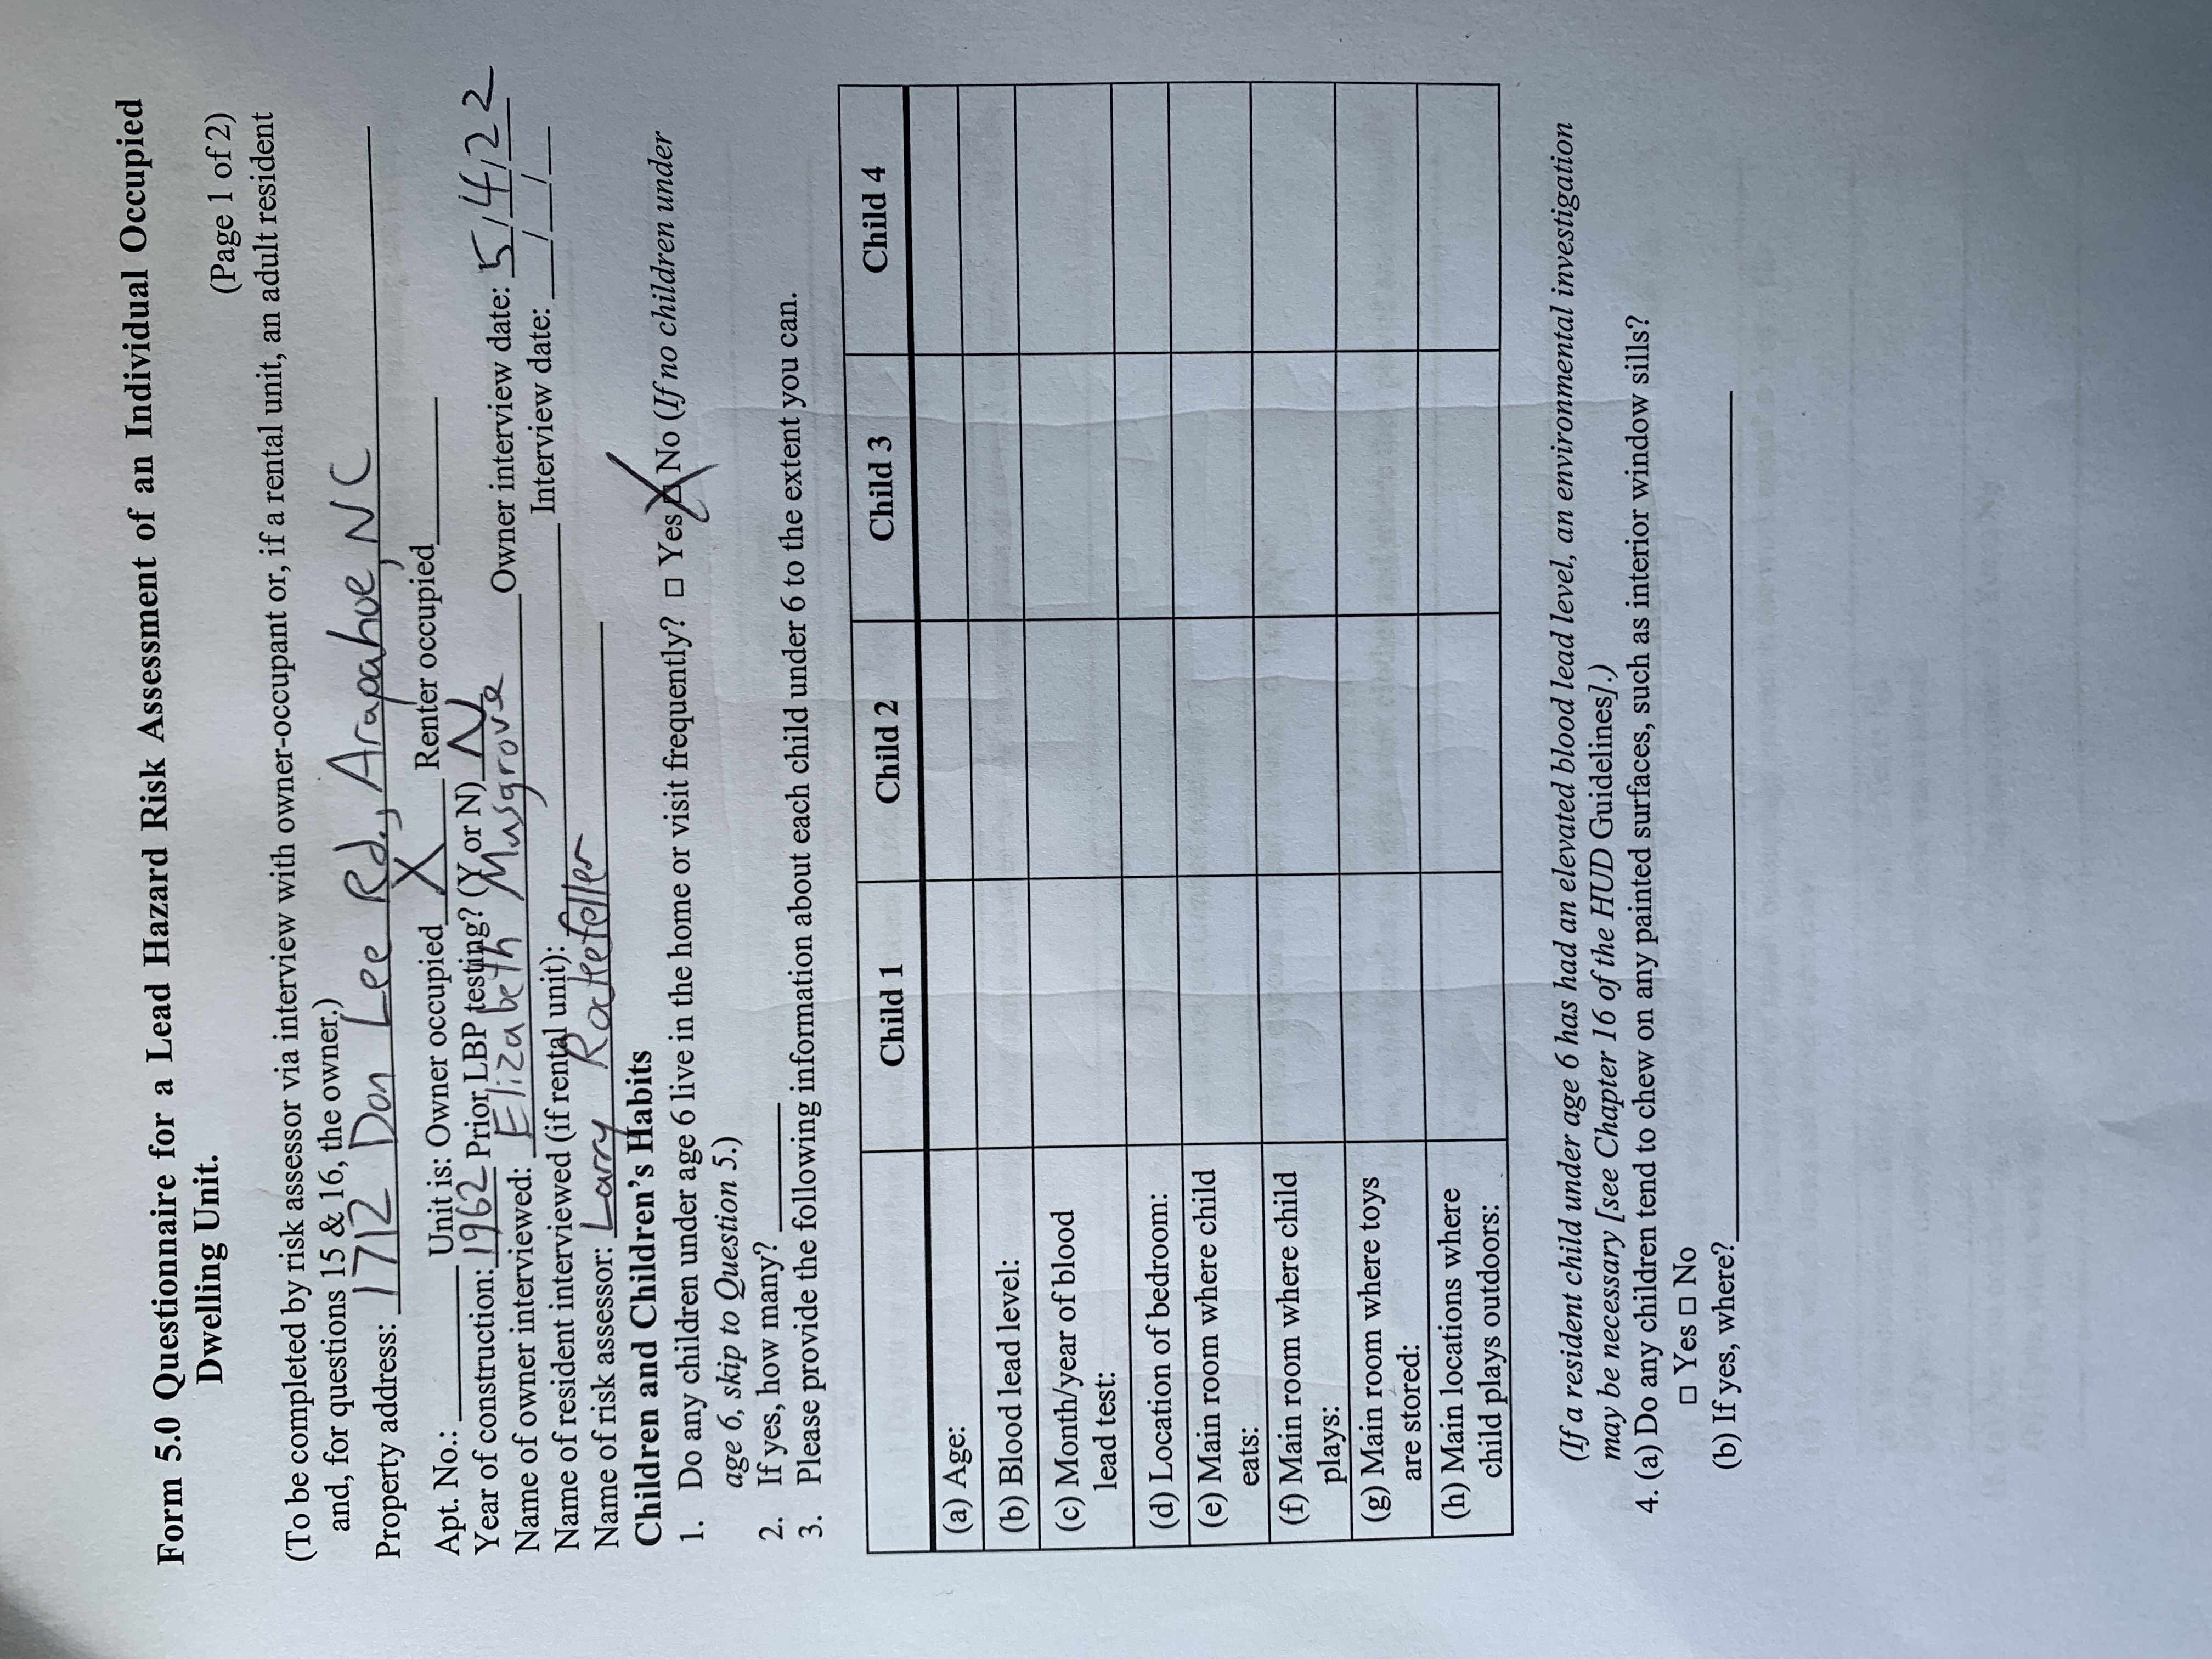 Form 5.0 Questionnaire for a Lead Hazard Risk Assessment of an Individual Occupied
Dwelling Unit.
(Page 1 of 2)
(To be completed by risk assessor via interview with owner-occupant or, if a rental unit, an adult resident
and, for questions 15 & 16, the owner.)
Property address: 1712 Don Lee Rd., Arapahoe, NC
Apt. No.: ________ Unit is: Owner occupied X Renter occupied ________
Year of construction: 1962 Prior LBP testing? (Y or N) N
Name of owner interviewed: Elizabeth Musgrove Owner interview date: 5/4/22
Name of resident interviewed (if rental unit): ________ Interview date: ___/___/___
Name of risk assessor: Larry Rockefeller
Children and Children's Habits
1. Do any children under age 6 live in the home or visit frequently? □ Yes ☒ No (If no children under
age 6, skip to Question 5.)
2. If yes, how many? ________
3. Please provide the following information about each child under 6 to the extent you can.
Child 1 Child 2 Child 3 Child 4
(a) Age:
(b) Blood lead level:
(c) Month/year of blood
lead test:
(d) Location of bedroom:
(e) Main room where child
eats:
(f) Main room where child
plays:
(g) Main room where toys
are stored:
(h) Main locations where
child plays outdoors:
(If a resident child under age 6 has had an elevated blood lead level, an environmental investigation
may be necessary [see Chapter 16 of the HUD Guidelines].)
4. (a) Do any children tend to chew on any painted surfaces, such as interior window sills?
□ Yes □ No
(b) If yes, where? ________